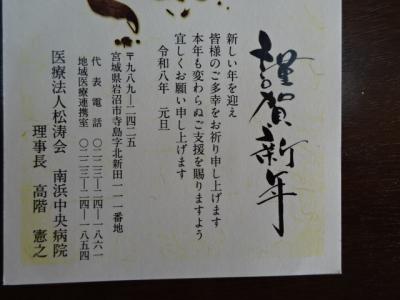 謹賀新年
新しい年を迎え
皆様のご多幸をお祈り申し上げます
本年も変わらぬご支援を賜りますよう
宜しくお願い申し上げます
令和八年 元旦
〒九八九-二四二五
宮城県岩沼市寺島字北新田一一一番地
代表電話 〇二二三-二四-一八六一
地域医療連携室 〇二二三-二四-一八五四
医療法人松涛会 南浜中央病院
理事長 高階 憲之